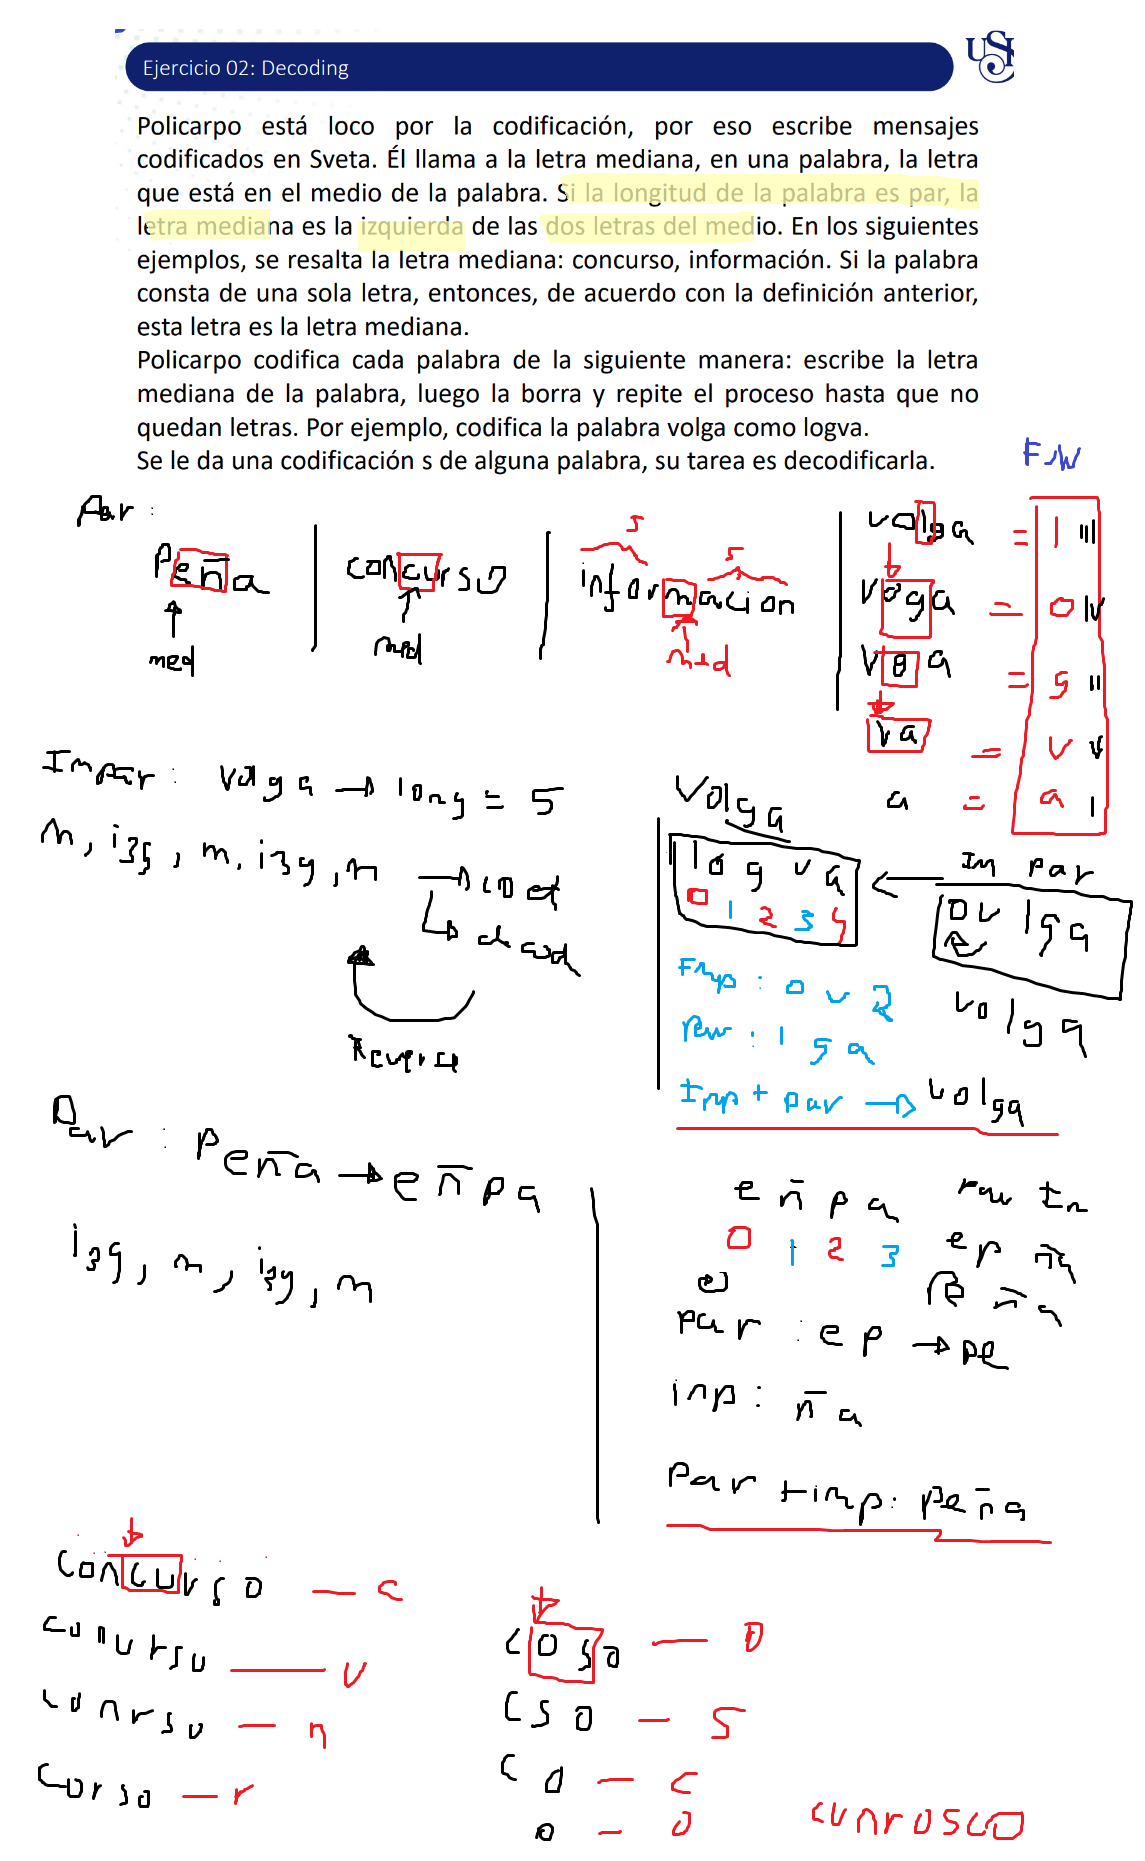 Ejercicio 02: Decoding
USI
Policarpo está loco por la codificación, por eso escribe mensajes
codificados en Sveta. Él llama a la letra mediana, en una palabra, la letra
que está en el medio de la palabra. Si la longitud de la palabra es par, la
letra mediana es la izquierda de las dos letras del medio. En los siguientes
ejemplos, se resalta la letra mediana: concurso, información. Si la palabra
consta de una sola letra, entonces, de acuerdo con la definición anterior,
esta letra es la letra mediana.
Policarpo codifica cada palabra de la siguiente manera: escribe la letra
mediana de la palabra, luego la borra y repite el proceso hasta que no
quedan letras. Por ejemplo, codifica la palabra volga como logva.
Se le da una codificación s de alguna palabra, su tarea es decodificarla.
Par:
Peña
med
concurso
med
5 5
informacion
med
volga = l III
voga = o IV
= g II
va = v V
a = a I
Impar: volga → long = 5
m, izq, m, izq, m → cod
decod
Reverse
Volga
l o g v a
0 1 2 3 4
Impar
ov lga
volga
: o v
: l g a
Imp + par → volga
Par: Peña → eñpa
izq, m, izq, m
e ñ p a
0 1 2 3
ep ña
ña
par: ep → pe
imp: ña
Par + imp: peña
concurso — c
conurso — u
conrso — n
corso — r
coso — o
cso — s
co — c
o — o
cunrosco